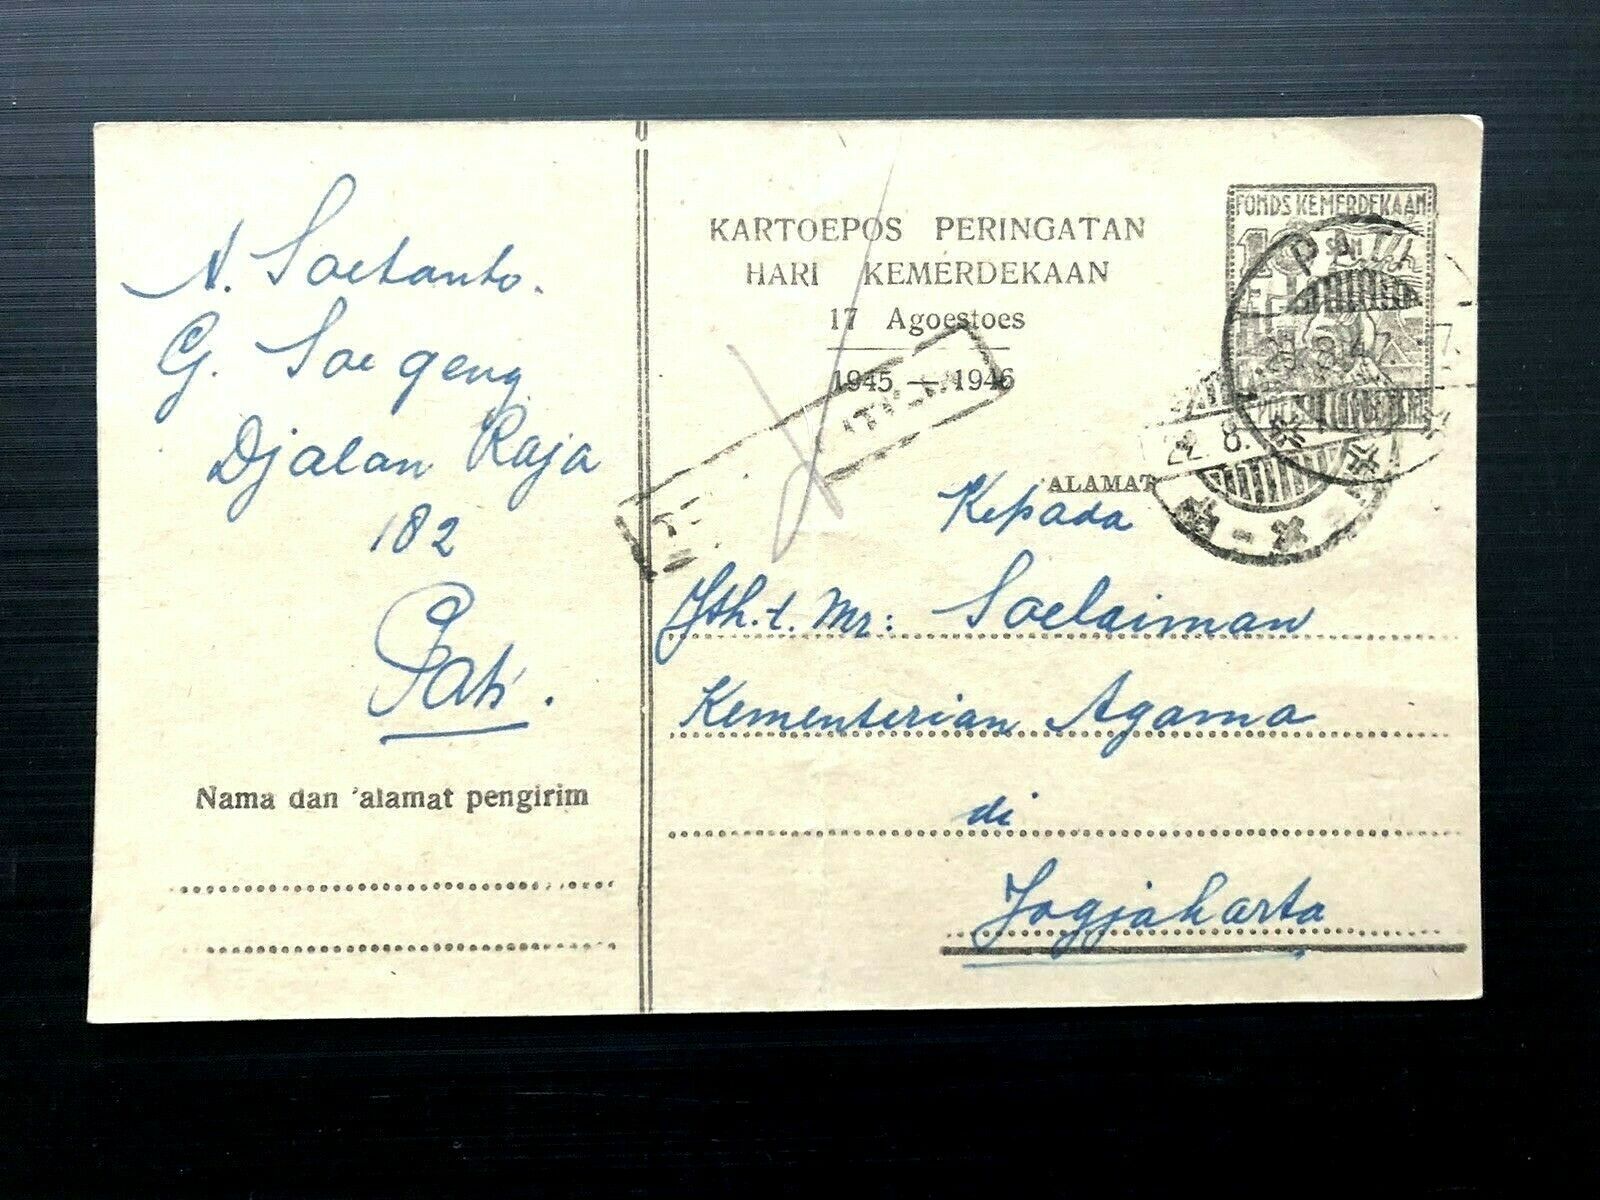 A. Soetanto.
G. Soegeng
Djalan Raja
182
Pati.
Nama dan 'alamat pengirim
KARTOEPOS PERINGATAN
HARI KEMERDEKAAN
17 Agoestoes
1945 — 1946
FONDS KEMERDEKAAN
10 SEN
PATI
23.8.47
22.8.
ALAMAT
Kepada
Jth. t. Mr: Soelaiman
Kementerian Agama
di
Jogjakarta